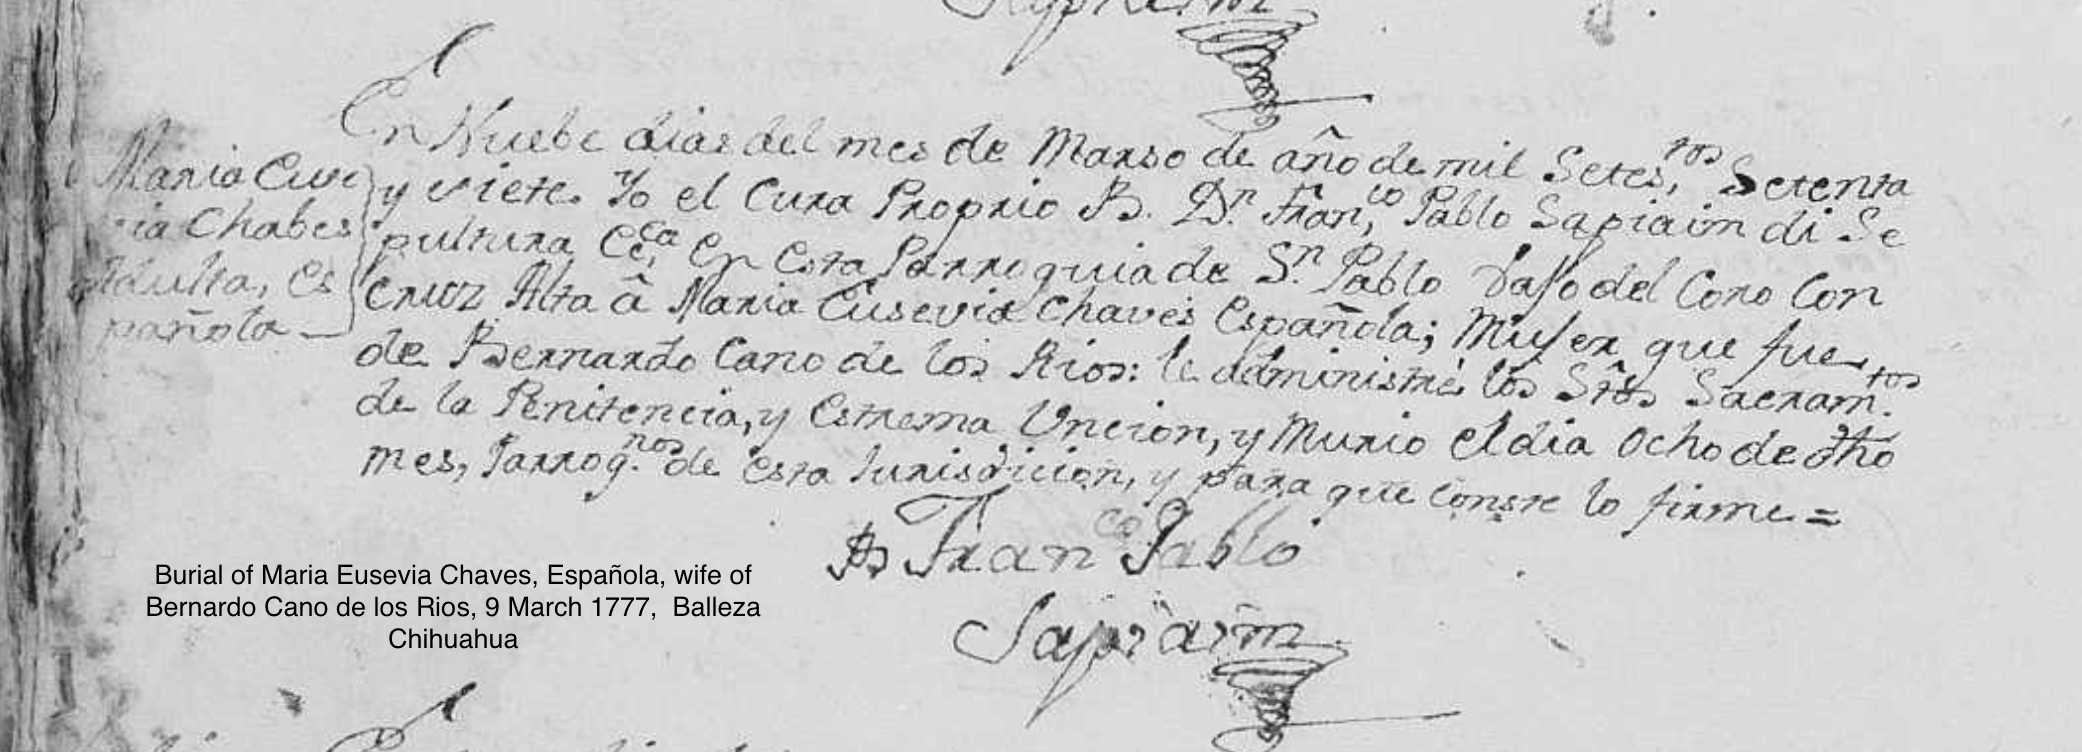 Sapiaim
En Nuebe dias del mes de Marso de año de mil Setes,tos Setenta
y siete. Yo el Cura Proprio B. Dn. Fran,co Pablo Sapiaim di Se
pultura Ce,ca En Esta Parroquia de Sn. Pablo Vaso del Coro Con
Cruz Alta â Maria Eusevia Chaves Española; Muser que fue
de Bernardo Cano de los Rios: le administré los Stõs Sacram.tos
de la Penitencia, y Estrema Uncion, y Murio el dia Ocho de dho
mes, Parrog.nos de esta Jurisdicion, y para que Conste lo firme =
Maria Euse
via Chabes
Adulta, Es
pañola
B Franco Pablo
Sapiaim
Burial of Maria Eusevia Chaves, Española, wife of
Bernardo Cano de los Rios, 9 March 1777, Balleza
Chihuahua